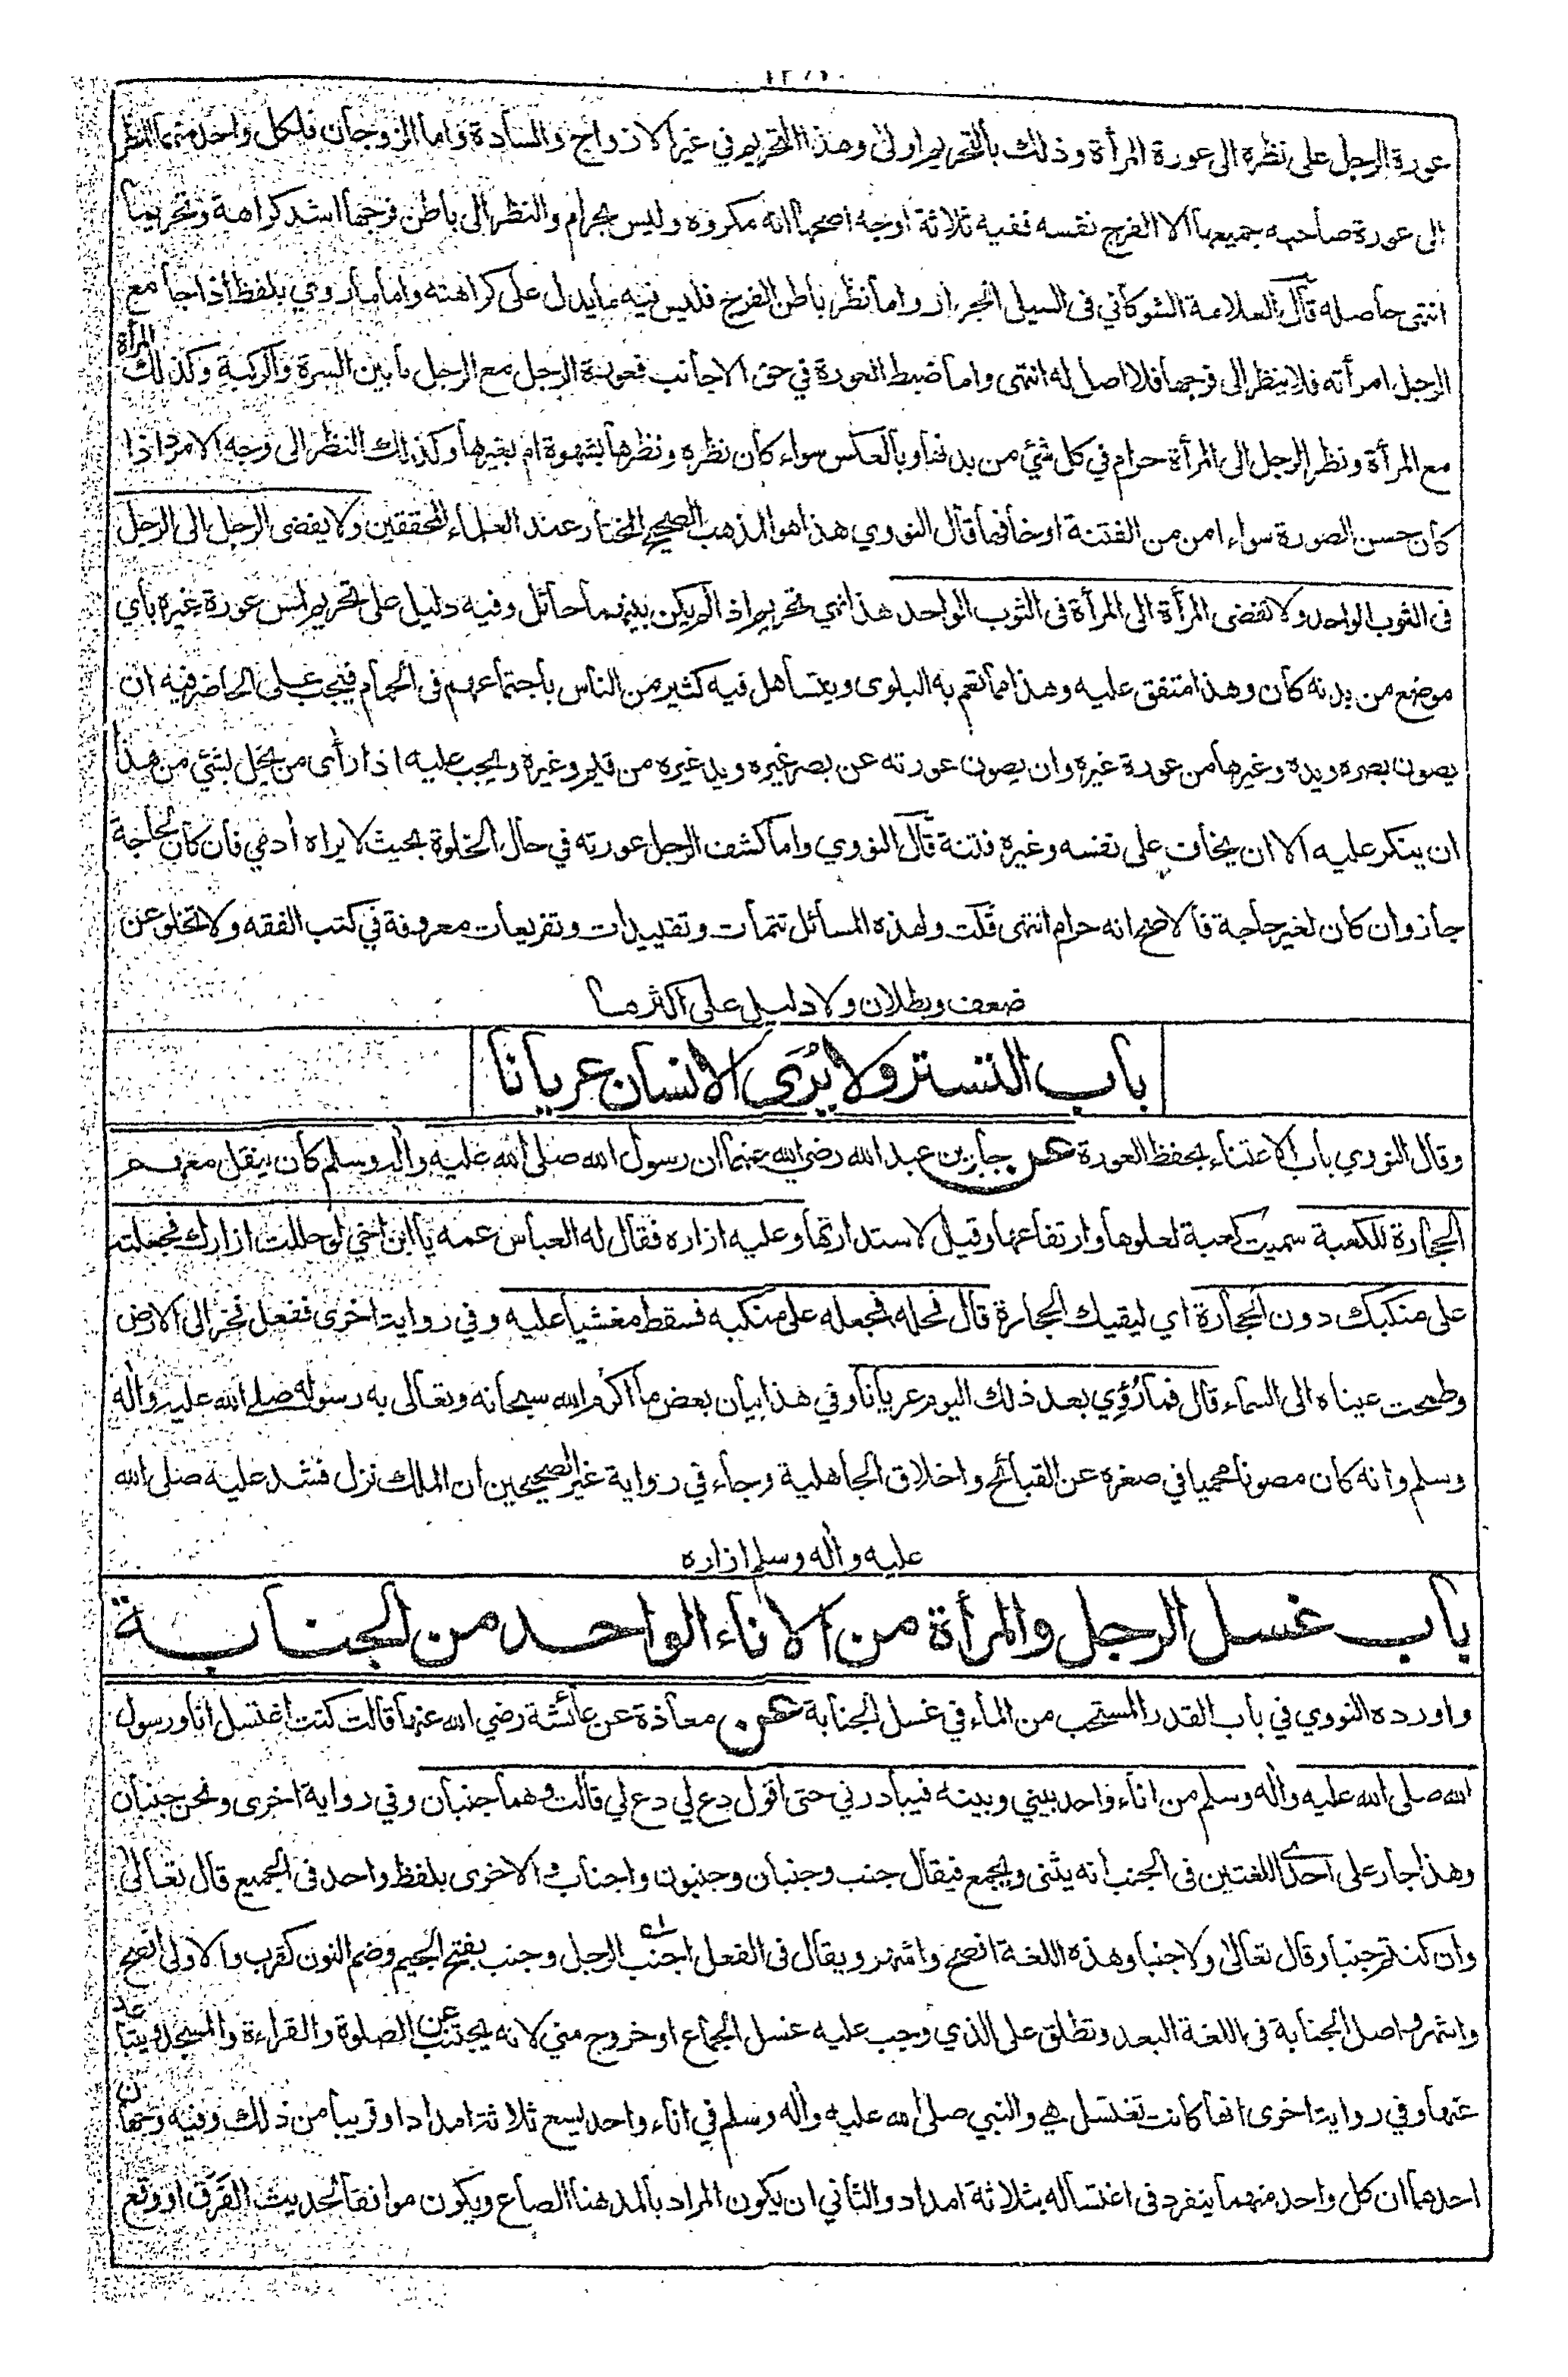 عورة الرجل على نظره الى عورة المرأة وذلك بالتحريم اولى وهذا التحريم في غير الازواج والسادة واما الزوجان فلكل واحد منهما النظر
الى عورة صاحبه جميعها الا الفرج نفسه ففيه ثلاثة اوجه اصحها انه مكروه وليس بحرام والنظر الى باطن فرجها اشد كراهة وتحريما
انتهى حاصله قال العلامة الشوكاني فى السيل الجرار واما نظر باطن الفرج فليس فيه ما يدل على كراهته واما ما روي بلفظ اذا جامع
الرجل امرأته فلا ينظر الى فرجها فلا اصل له انتهى واما ضبط العورة في حق الاجانب فعورة الرجل مع الرجل ما بين السرة والركبة وكذلك المرأة
مع المرأة ونظر الرجل الى المرأة حرام في كل شئ من بدنها وبالعكس سواء كان نظره ونظرها بشهوة ام بغيرها وكذلك النظر الى وجه الامرد اذا
كان حسن الصورة سواء امن من الفتنة او خافها قال النووي هذا هو المذهب الصحيح المختار عند العلماء المحققين ولا يفضى الرجل الى الرجل
فى الثوب الواحد ولا تفضى المرأة الى المرأة فى الثوب الواحد هذا نهي تحريم اذا لم يكن بينهما حائل وفيه دليل على تحريم لمس عورة غيره بأي
موضع من بدنه كان وهذا متفق عليه وهذا مما تعم به البلوى ويتساهل فيه كثير من الناس باجتماعهم فى الحمام فيجب على الحاضر فيه ان
يصون بصره ويده وغيرها من عورة غيره وان يصون عورته عن بصر غيره ويد غيره من قيم وغيره ويجب عليه اذا رأى من يخل بشئ من هذا
ان ينكر عليه الا ان يخاف على نفسه وغيره فتنة قال النووي واما كشف الرجل عورته في حال الخلوة بحيث لا يراه أدمي فان كان لحاجة
جاز وان كان لغير حاجة فالاصح انه حرام انتهى قلت ولهذه المسائل تتمات وتقييدات وتفريعات معروفة في كتب الفقه ولا تخلو عن
ضعف وبطلان ولا دليل على اكثرها
باب التستر ولا يُرَى الانسان عريانا
وقال النووي باب الاعتناء بحفظ العورة عن جابر بن عبد الله رضي الله عنهما ان رسول الله صلى الله عليه واله وسلم كان ينقل معهم
الحجارة للكعبة سميت كعبة لعلوها وارتفاعها وقيل لاستدارتها وعليه ازاره فقال له العباس عمه يا ابن اخي لو حللت ازارك فجعلته
على منكبك دون الحجارة اي ليقيك الحجارة قال فحله فجعله على منكبه فسقط مغشيا عليه وفي رواية اخرى ففعل فخر الى الارض
وطمحت عيناه الى السماء قال فما رُؤي بعد ذلك اليوم عريانا وفي هذا بيان بعض ما اكرم الله سبحانه وتعالى به رسوله صلى الله عليه واله
وسلم وانه كان مصونا محميا في صغره عن القبائح واخلاق الجاهلية وجاء في رواية غير الصحيحين ان الملك نزل فشد عليه صلى الله
عليه واله وسلم ازاره
باب غسل الرجل والمرأة من الاناء الواحد من الجنابة
واورده النووي في باب القدر المستحب من الماء في غسل الجنابة عن معاذة عن عائشة رضي الله عنها قالت كنت اغتسل انا ورسول
الله صلى الله عليه واله وسلم من اناء واحد بيني وبينه فيبادرني حتى اقول دع لي دع لي قالت وهما جنبان وفي رواية اخرى ونحن جنبان
وهذا جار على احدى اللغتين فى الجنب انه يثنى ويجمع فيقال جنب وجنبان وجنبون واجناب والاخرى بلفظ واحد فى الجميع قال تعالى
وان كنتم جنبا وقال تعالى ولا جنبا وهذه اللغة افصح واشهر ويقال فى الفعل اجنب الرجل وجنب بفتح الجيم وضم النون كقرب والاولى افصح
واشهر واصل الجنابة فى اللغة البعد وتطلق على الذي وجب عليه غسل الجماع او خروج مني لانه يجتنب عن الصلوة والقراءة والمسجد ويتباعد
عنها وفي رواية اخرى انها كانت تغتسل هي والنبي صلى الله عليه واله وسلم في اناء واحد يسع ثلاثة امداد او قريبا من ذلك وفيه وجهان
احدهما ان كل واحد منهما ينفرد فى اغتساله بثلاثة امداد والثاني ان يكون المراد بالمد هنا الصاع ويكون موافقا لحديث الفَرَق او وقع